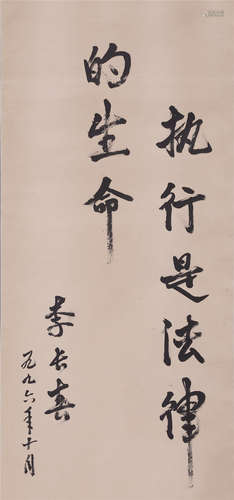 执行是法律
的生命
李长春
一九九六年十月